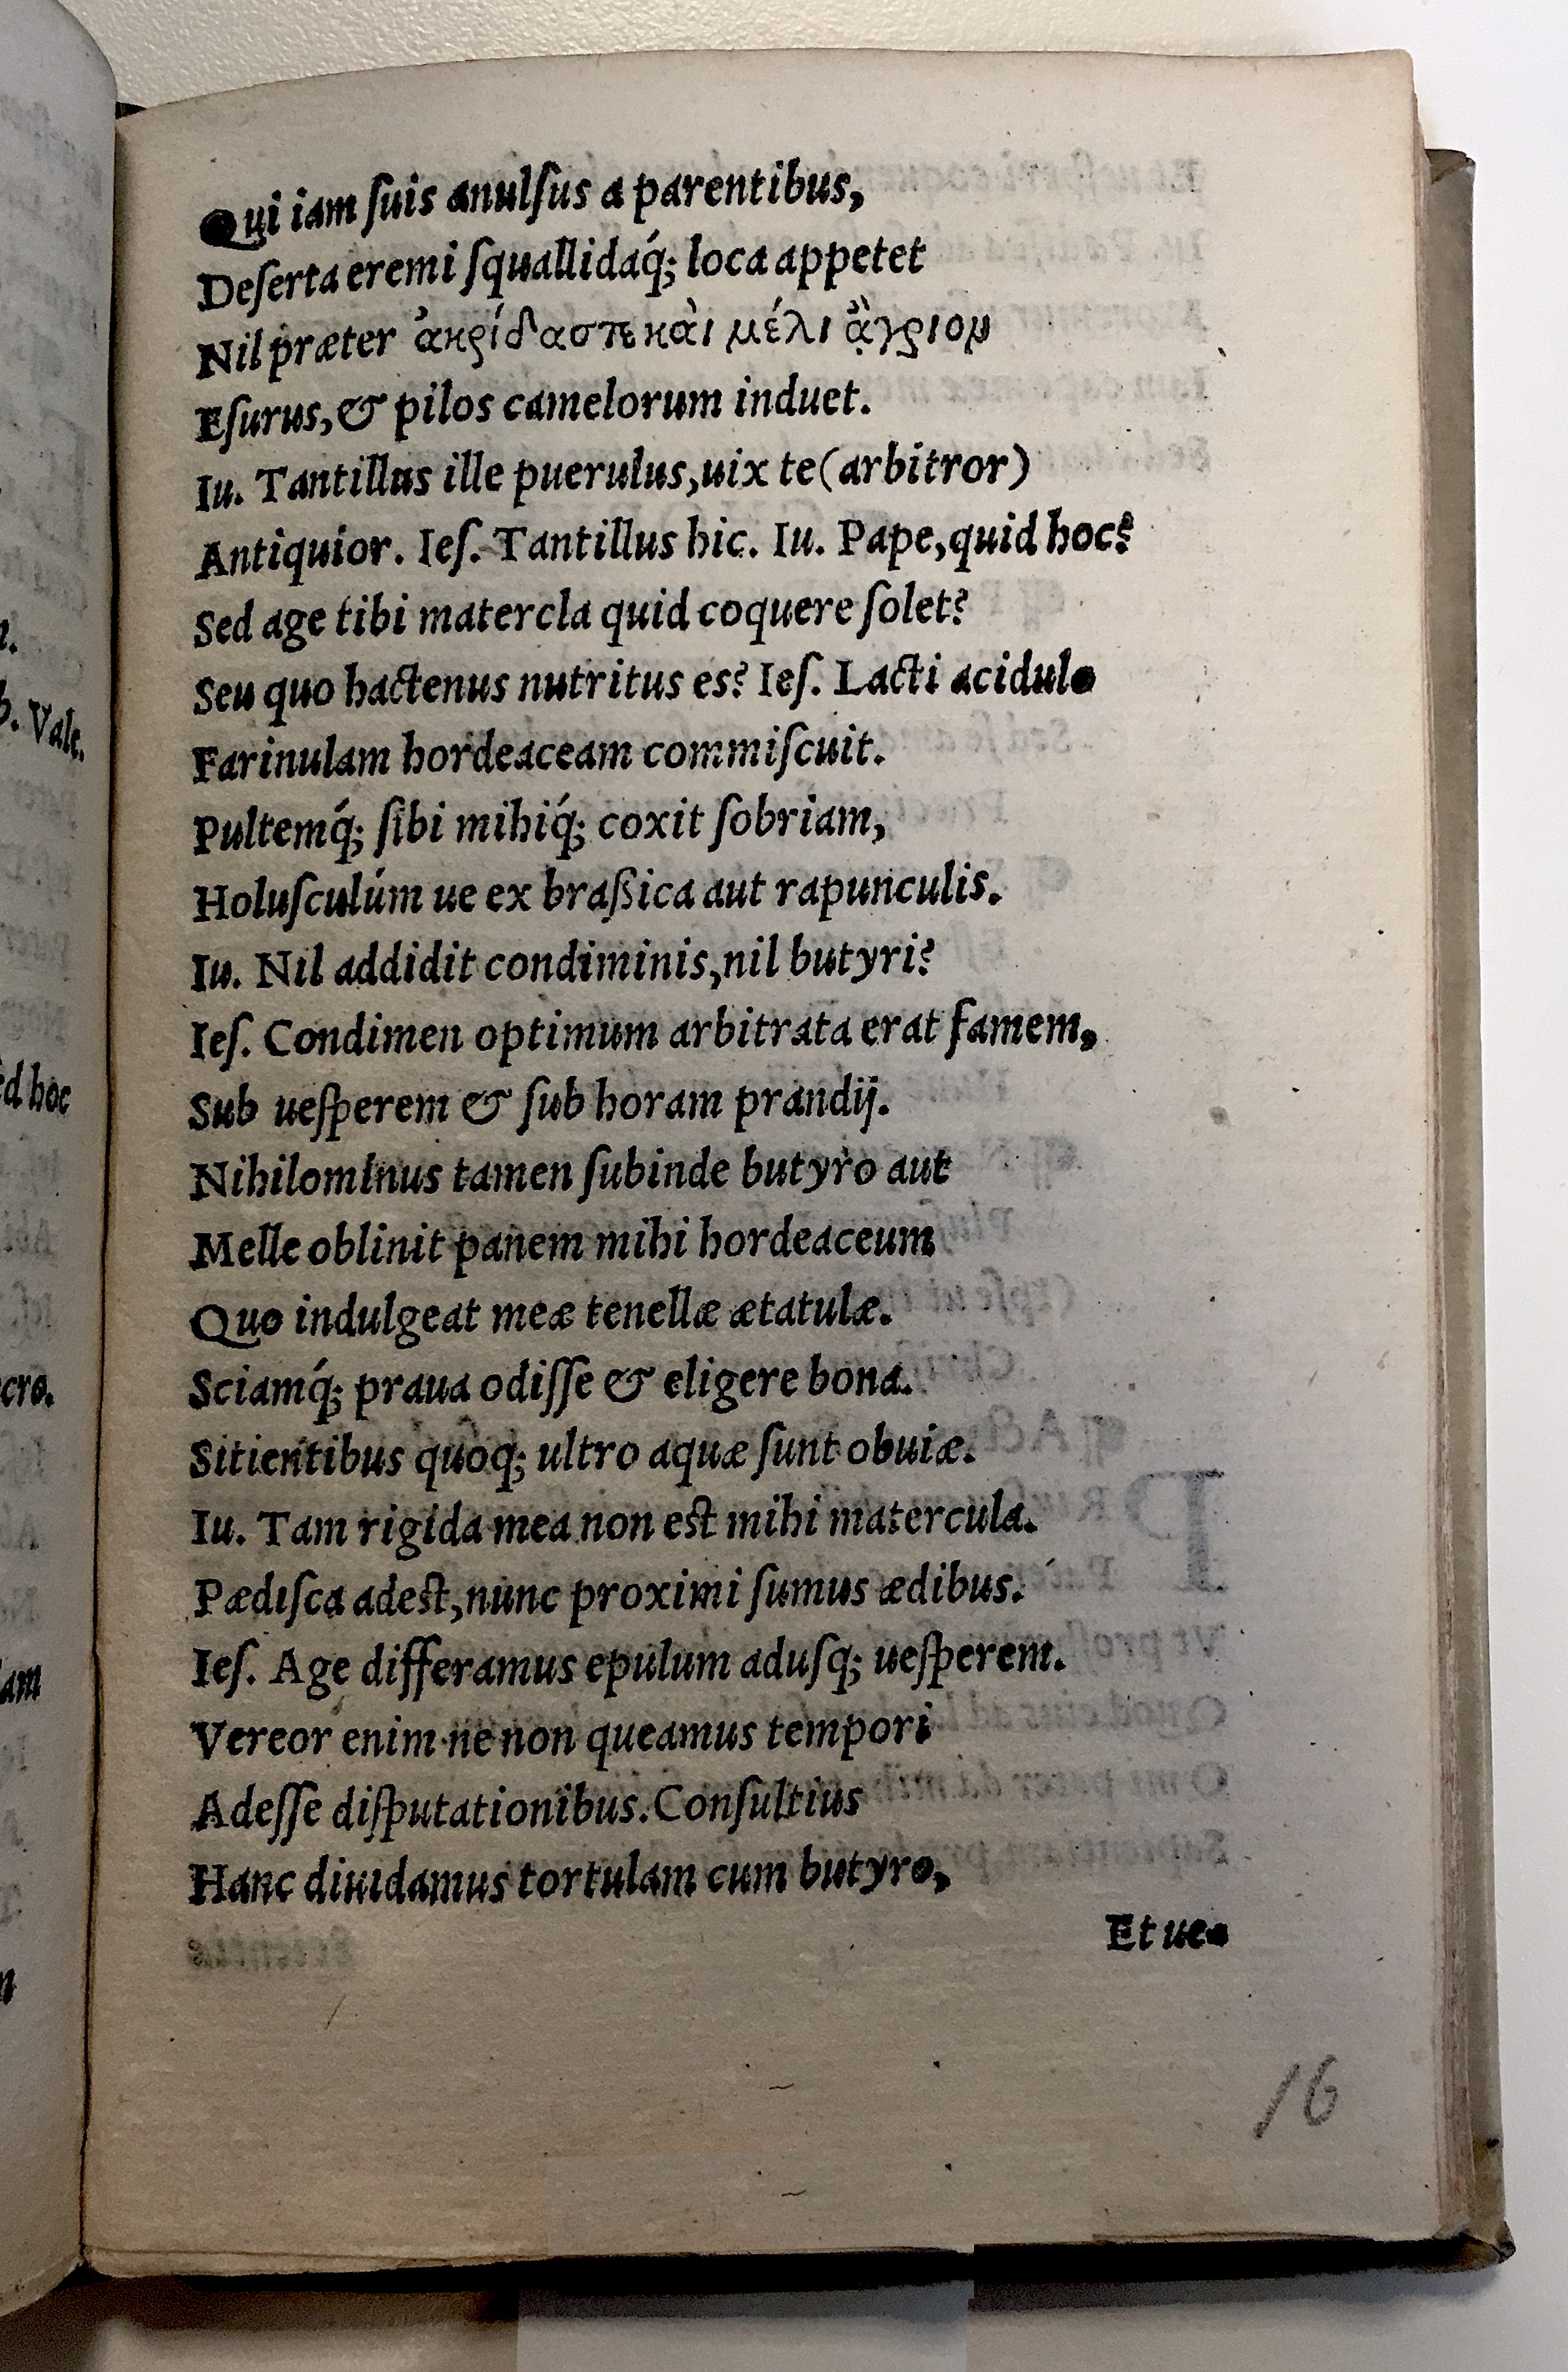 Qui iam ſuis anulſus a parentibus,
Deſerta eremi ſquallidaq́; loca appetet
Nil præter ἀκρίδας τε κὰι μέλι ἄγριον
Eſurus, & pilos camelorum induet.
Iu. Tantillus ille puerulus, uix te (arbitror)
Antiquior. Ieſ. Tantillus hic. Iu. Pape, quid hoc?
Sed age tibi matercla quid coquere ſolet?
Seu quo hactenus nutritus es? Ieſ. Lacti acidulo
Farinulam hordeaceam commiſcuit.
Pultemq́; ſibi mihiq́; coxit ſobriam,
Holuſculúm ue ex braßica aut rapunculis.
Iu. Nil addidit condiminis, nil butyri?
Ieſ. Condimen optimum arbitrata erat famem,
Sub ueſperem & ſub horam prandij.
Nihilominus tamen ſubinde butyro aut
Melle oblinit panem mihi hordeaceum
Quo indulgeat meæ tenellæ ætatulæ.
Sciamq́; praua odiſſe & eligere bona.
Sitientibus quoq; ultro aquæ ſunt obuiæ.
Iu. Tam rigida mea non est mihi matercula.
Pædiſca adest, nunc proximi ſumus ædibus.
Ieſ. Age differamus epulum aduſq; ueſperem.
Vereor enim ne non queamus tempori
Adeſſe diſputationibus. Conſultius
Hanc diuidamus tortulam cum butyro,
Et ue-
16